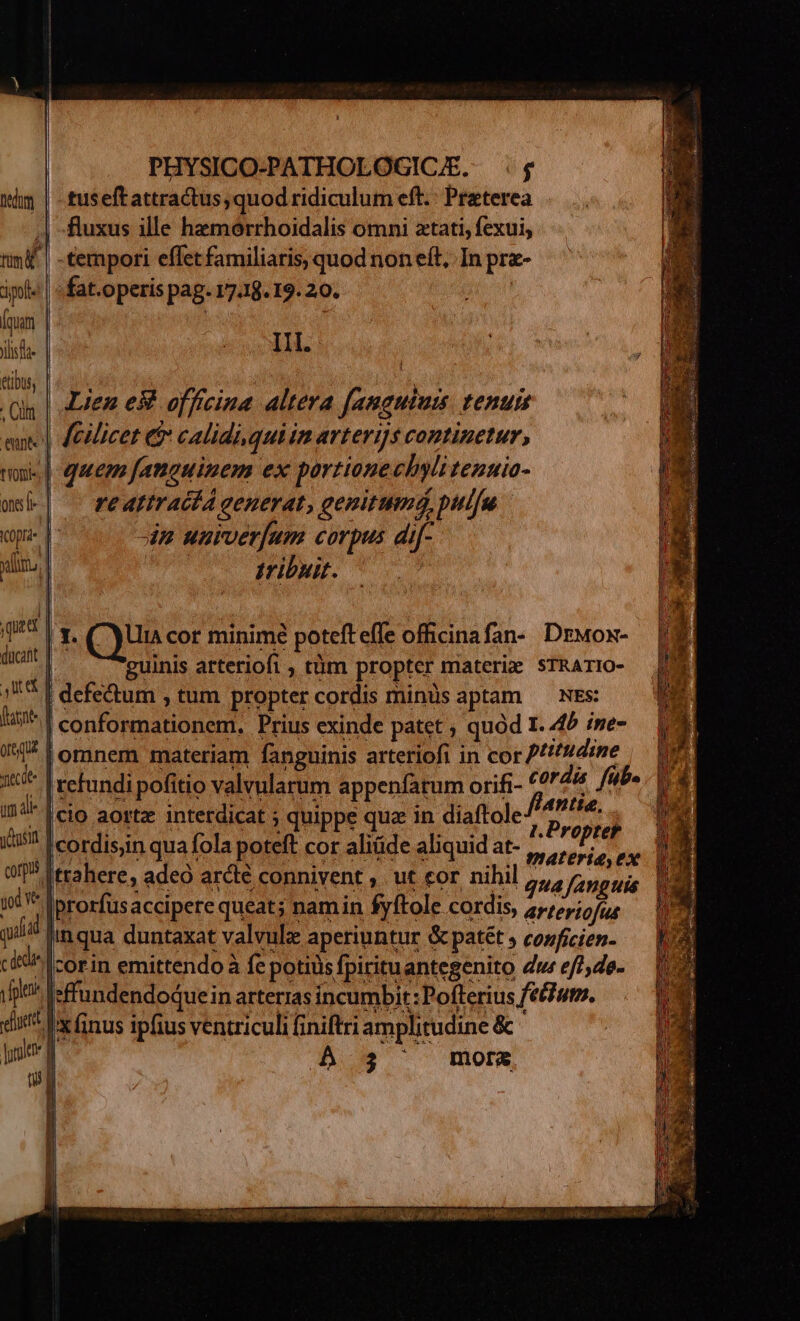 PHYSICO-PATHOLOGICÆ. 5
tus est attractus, quod ridiculum est. Præterea
fluxus ille hæmorrhoidalis omni ætati, sexui,
tempori esset familiaris, quod non est, In præ-
fat. operis pag. 17.18.19.20.
III.
Lien est officina altera sanguinis tenuis
scilicet & calidi, qui in arterijs continetur,
quem sanguinem ex portione chyli tenuio-
re attractâ generat, genitumq́, pulsu
in universum corpus dis-
tribuit.
1. QUia cor minimè potest esse officina san- DEMON-
guinis arteriosi, tùm propter materiæ STRATIO-
defectum, tum propter cordis minùs aptam NES:
conformationem. Prius exinde patet, quòd 1. Ab ine-
omnem materiam sanguinis arteriosi in cor ptitudine
refundi positio valvularum appensarum orifi- cordis sub-
cio aortæ interdicat; quippe quæ in diastole stantiæ.
cordis, in qua sola potest cor aliũde aliquid at- 1. Propter
trahere, adeò arctè connivent, ut cor nihil materiã, ex
prorsus accipere queat; nam in systole cordis, qua sanguis
in qua duntaxat valvulæ aperiuntur & patẽt, arteriosus
cor in emittendo à se potiùs spiritu antegenito conficien-
effundendoque in arterias incumbit: Posterius dus est, de-
ex sinus ipsius ventriculi sinistri amplitudine & fectum.
A 3 moræ